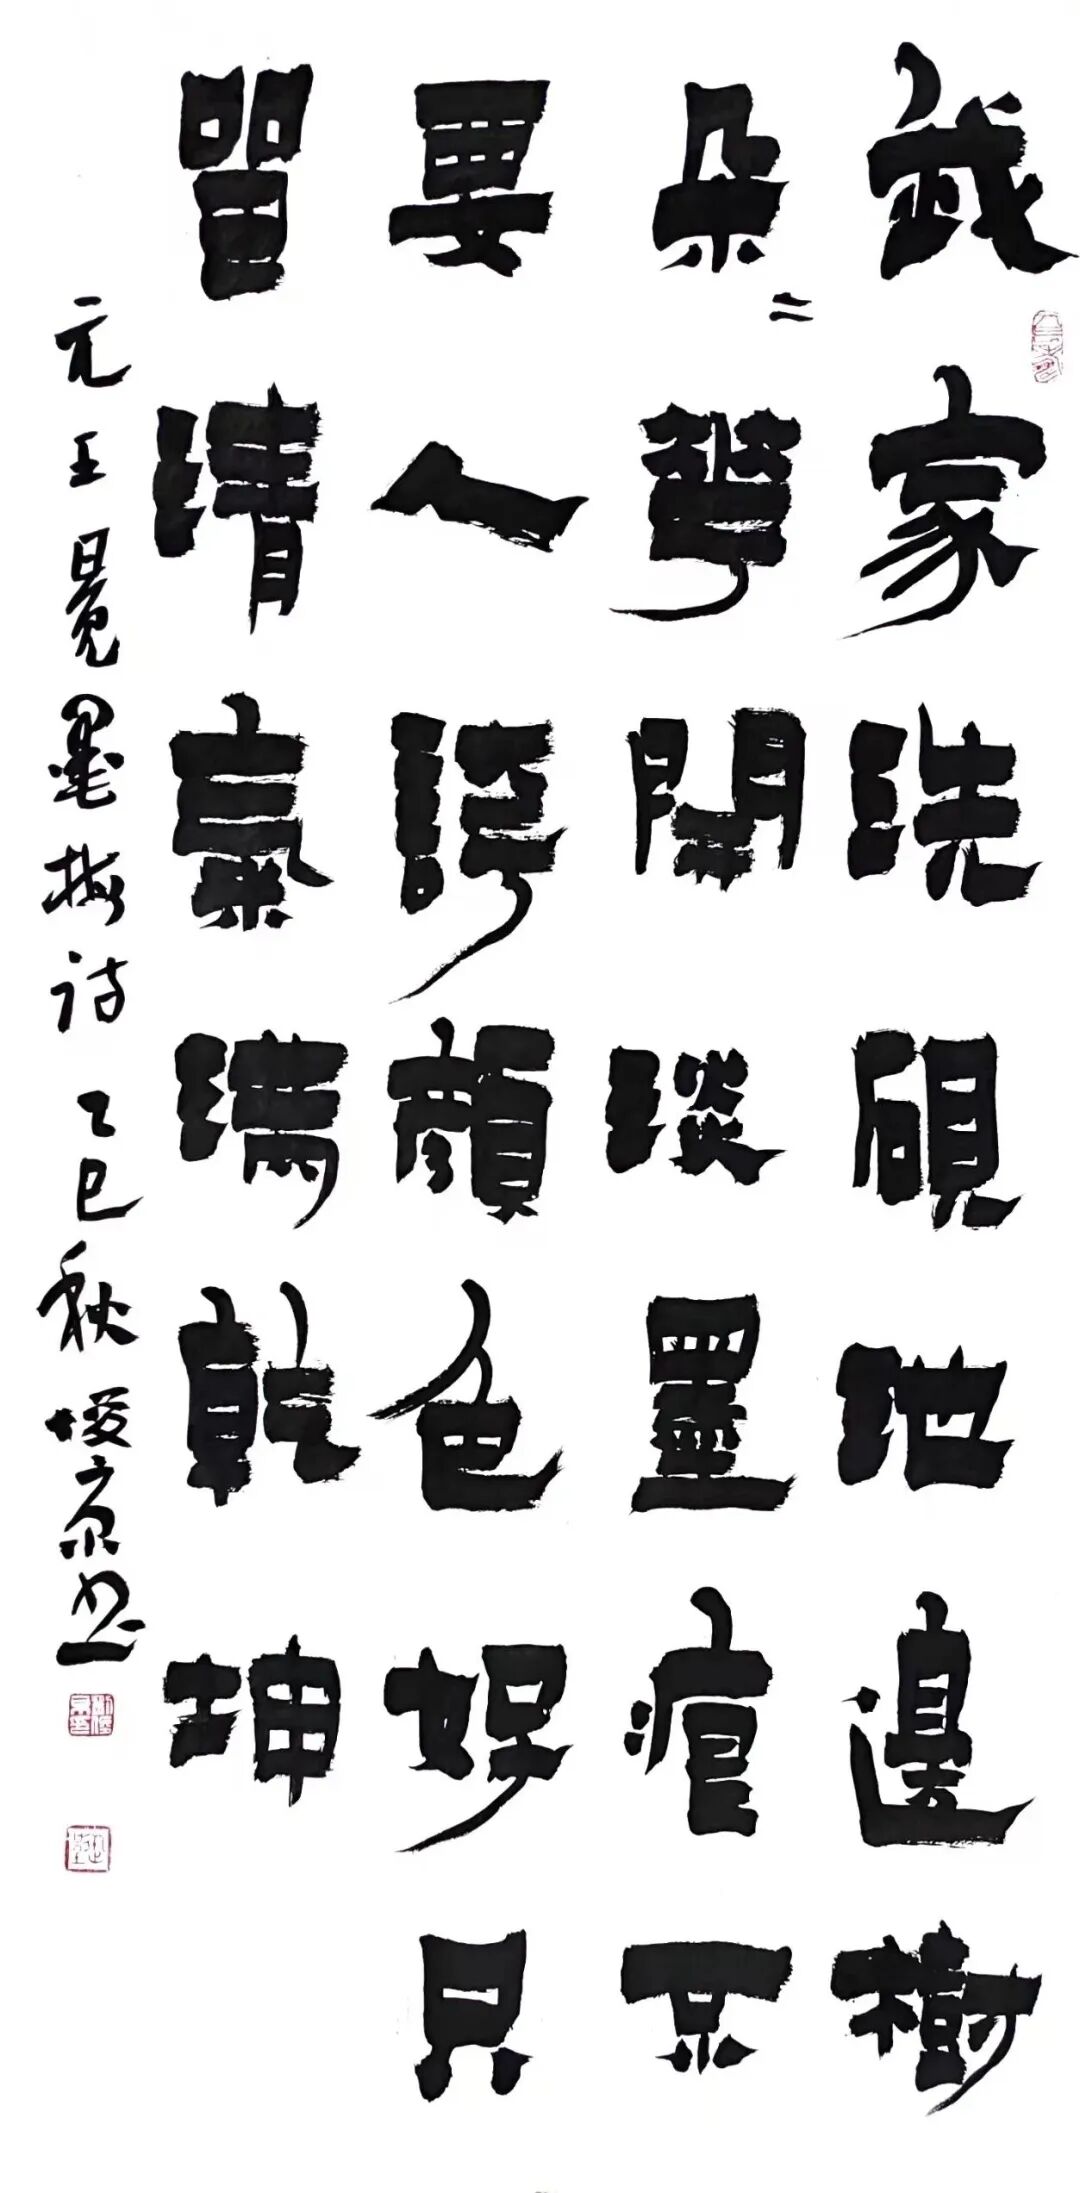 我家洗硯池邊樹
朵々華開淡墨痕不
要人誇顏色好只
留清氣滿乾坤
元王冕墨梅诗乙巳秋埈京书